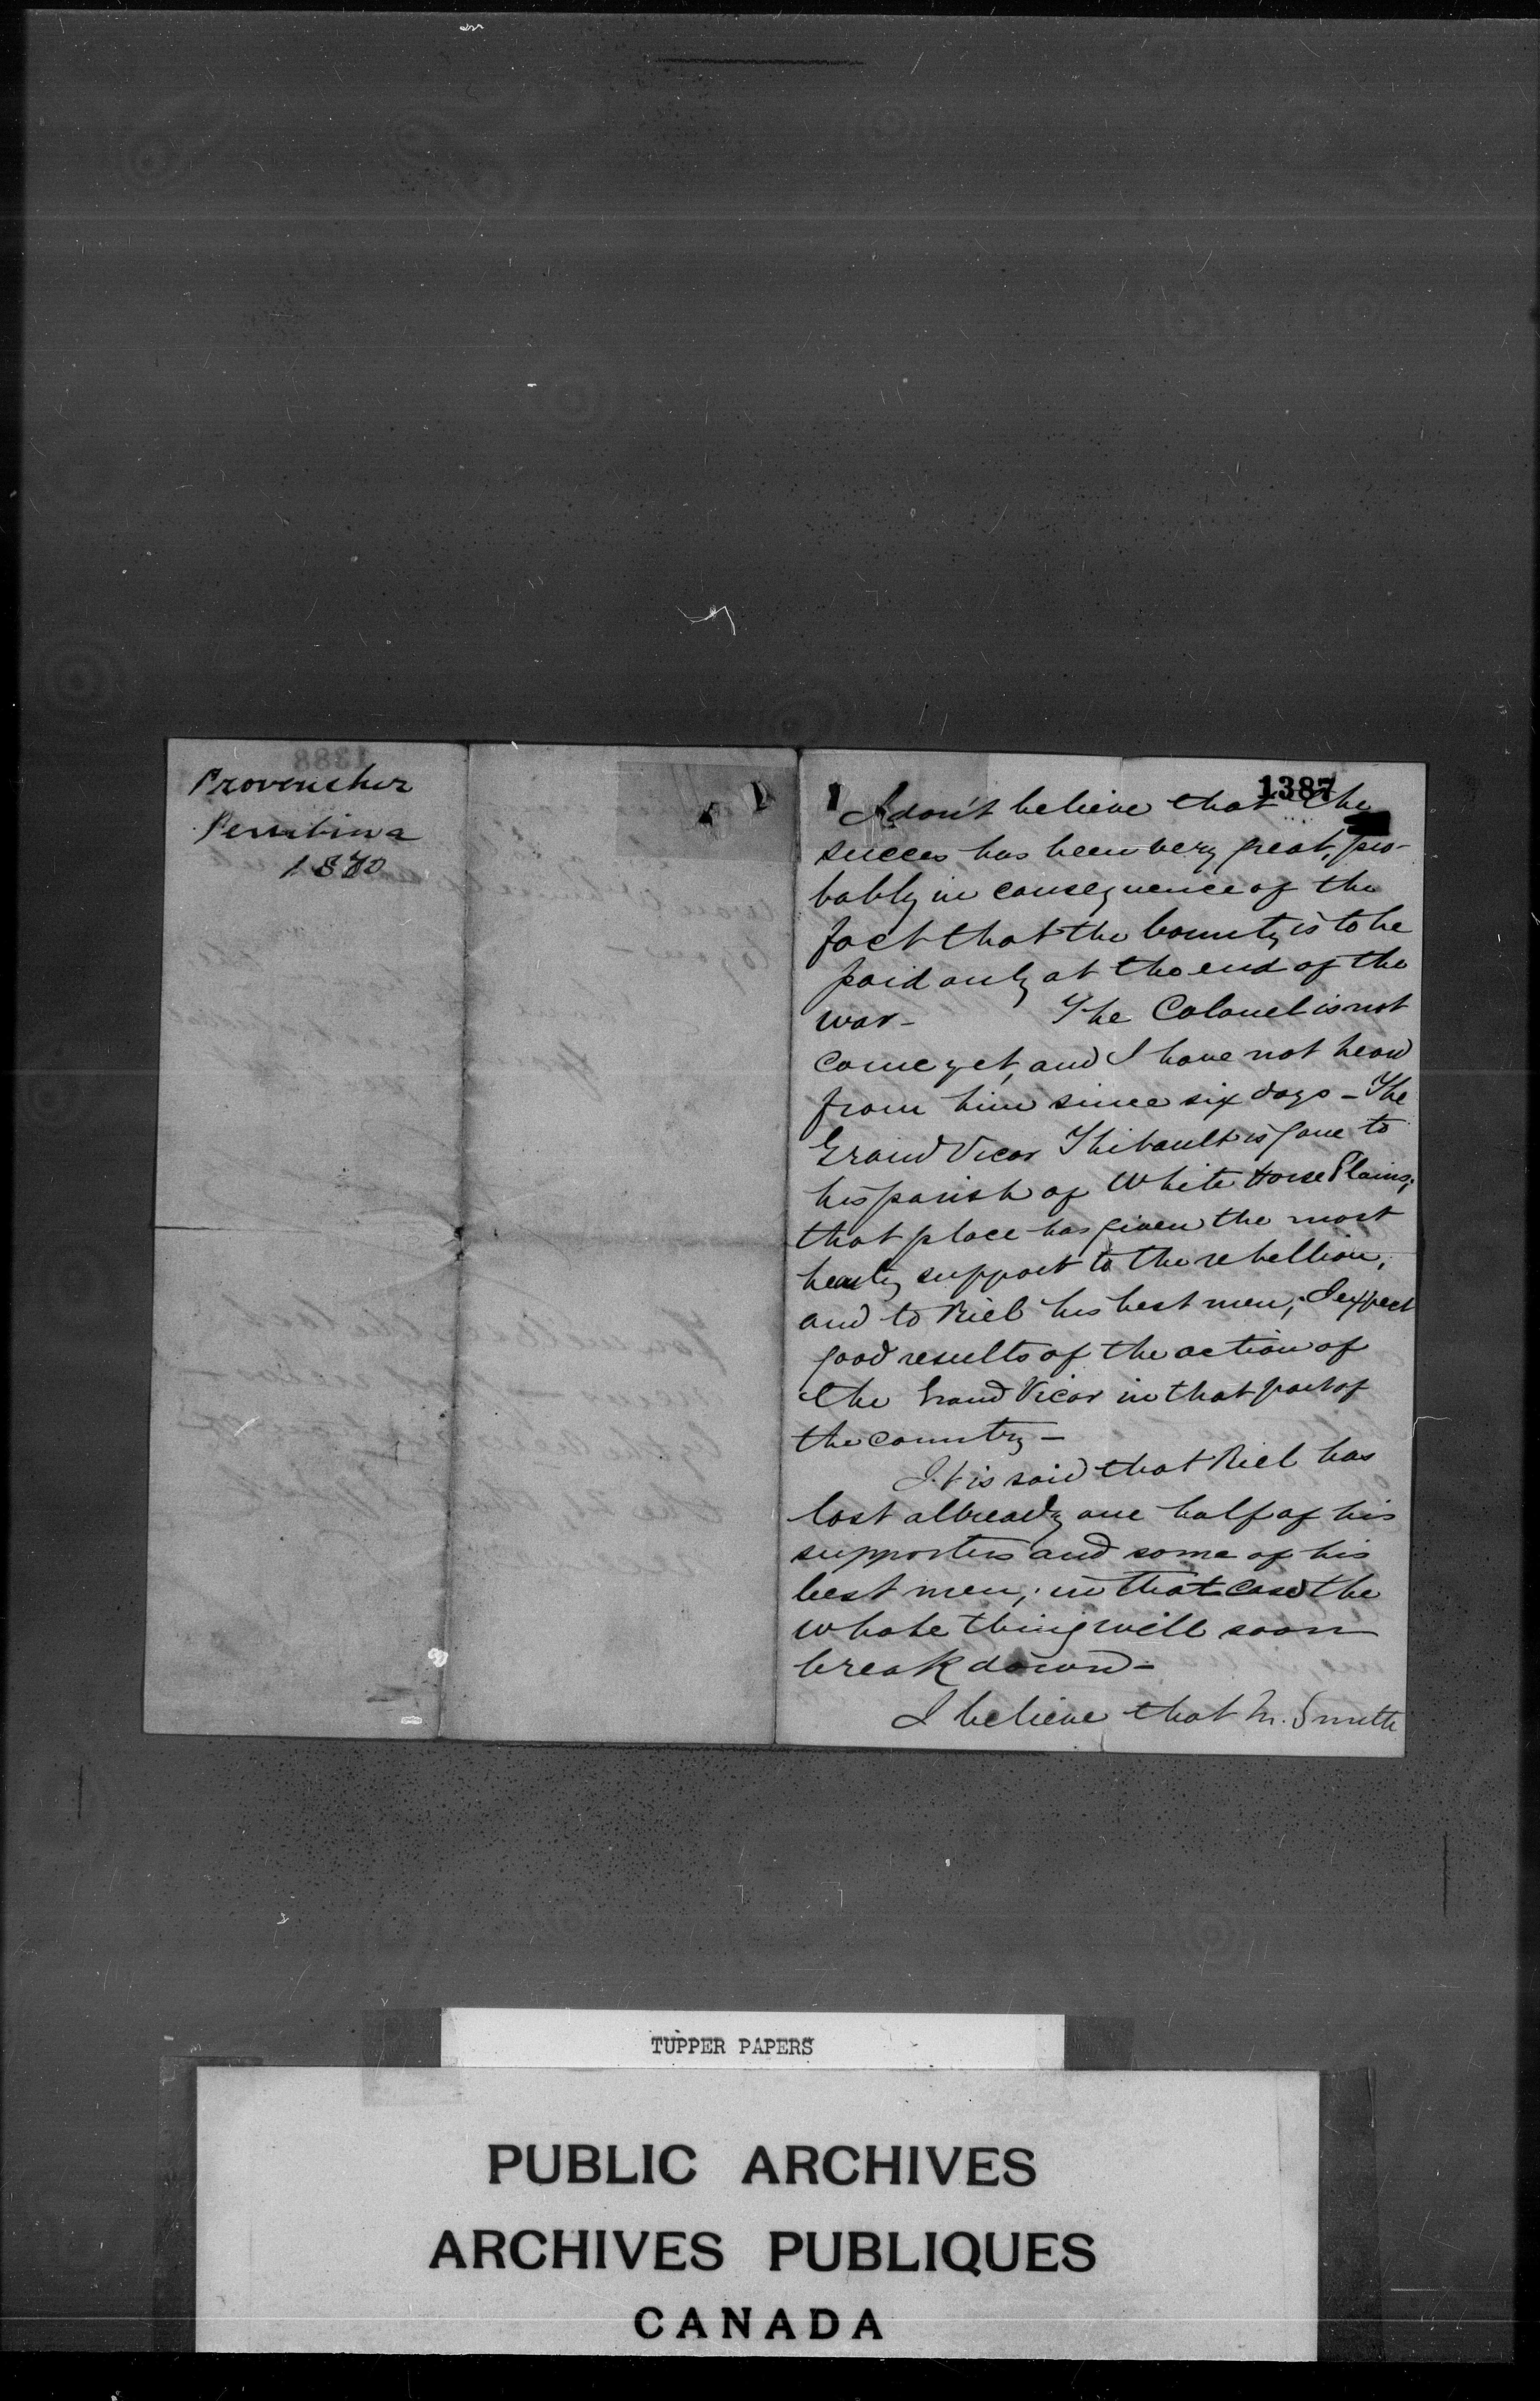 Provencher
Pembina
1870
1387
I don't believe that the
succes has been very great, pro-
bably in consequence of the
fact that the bounty is to be
paid only at the end of the
war - The Colonel is not
come yet, and I have not heard
from him since six days - The
Grand Vicar Thibault is gone to
his parish of White Horse Plains;
that place has given the most
hearty support to the rebellion,
and to Riel his best men; I expect
good results of the action of
the Grand Vicar in that part of
the country -
It is said that Riel has
lost allready one half of his
supporters and some of his
best men; in that case the
whole thing will soon
break down -
I believe that M. Smith
TUPPER PAPERS
PUBLIC ARCHIVES
ARCHIVES PUBLIQUES
CANADA